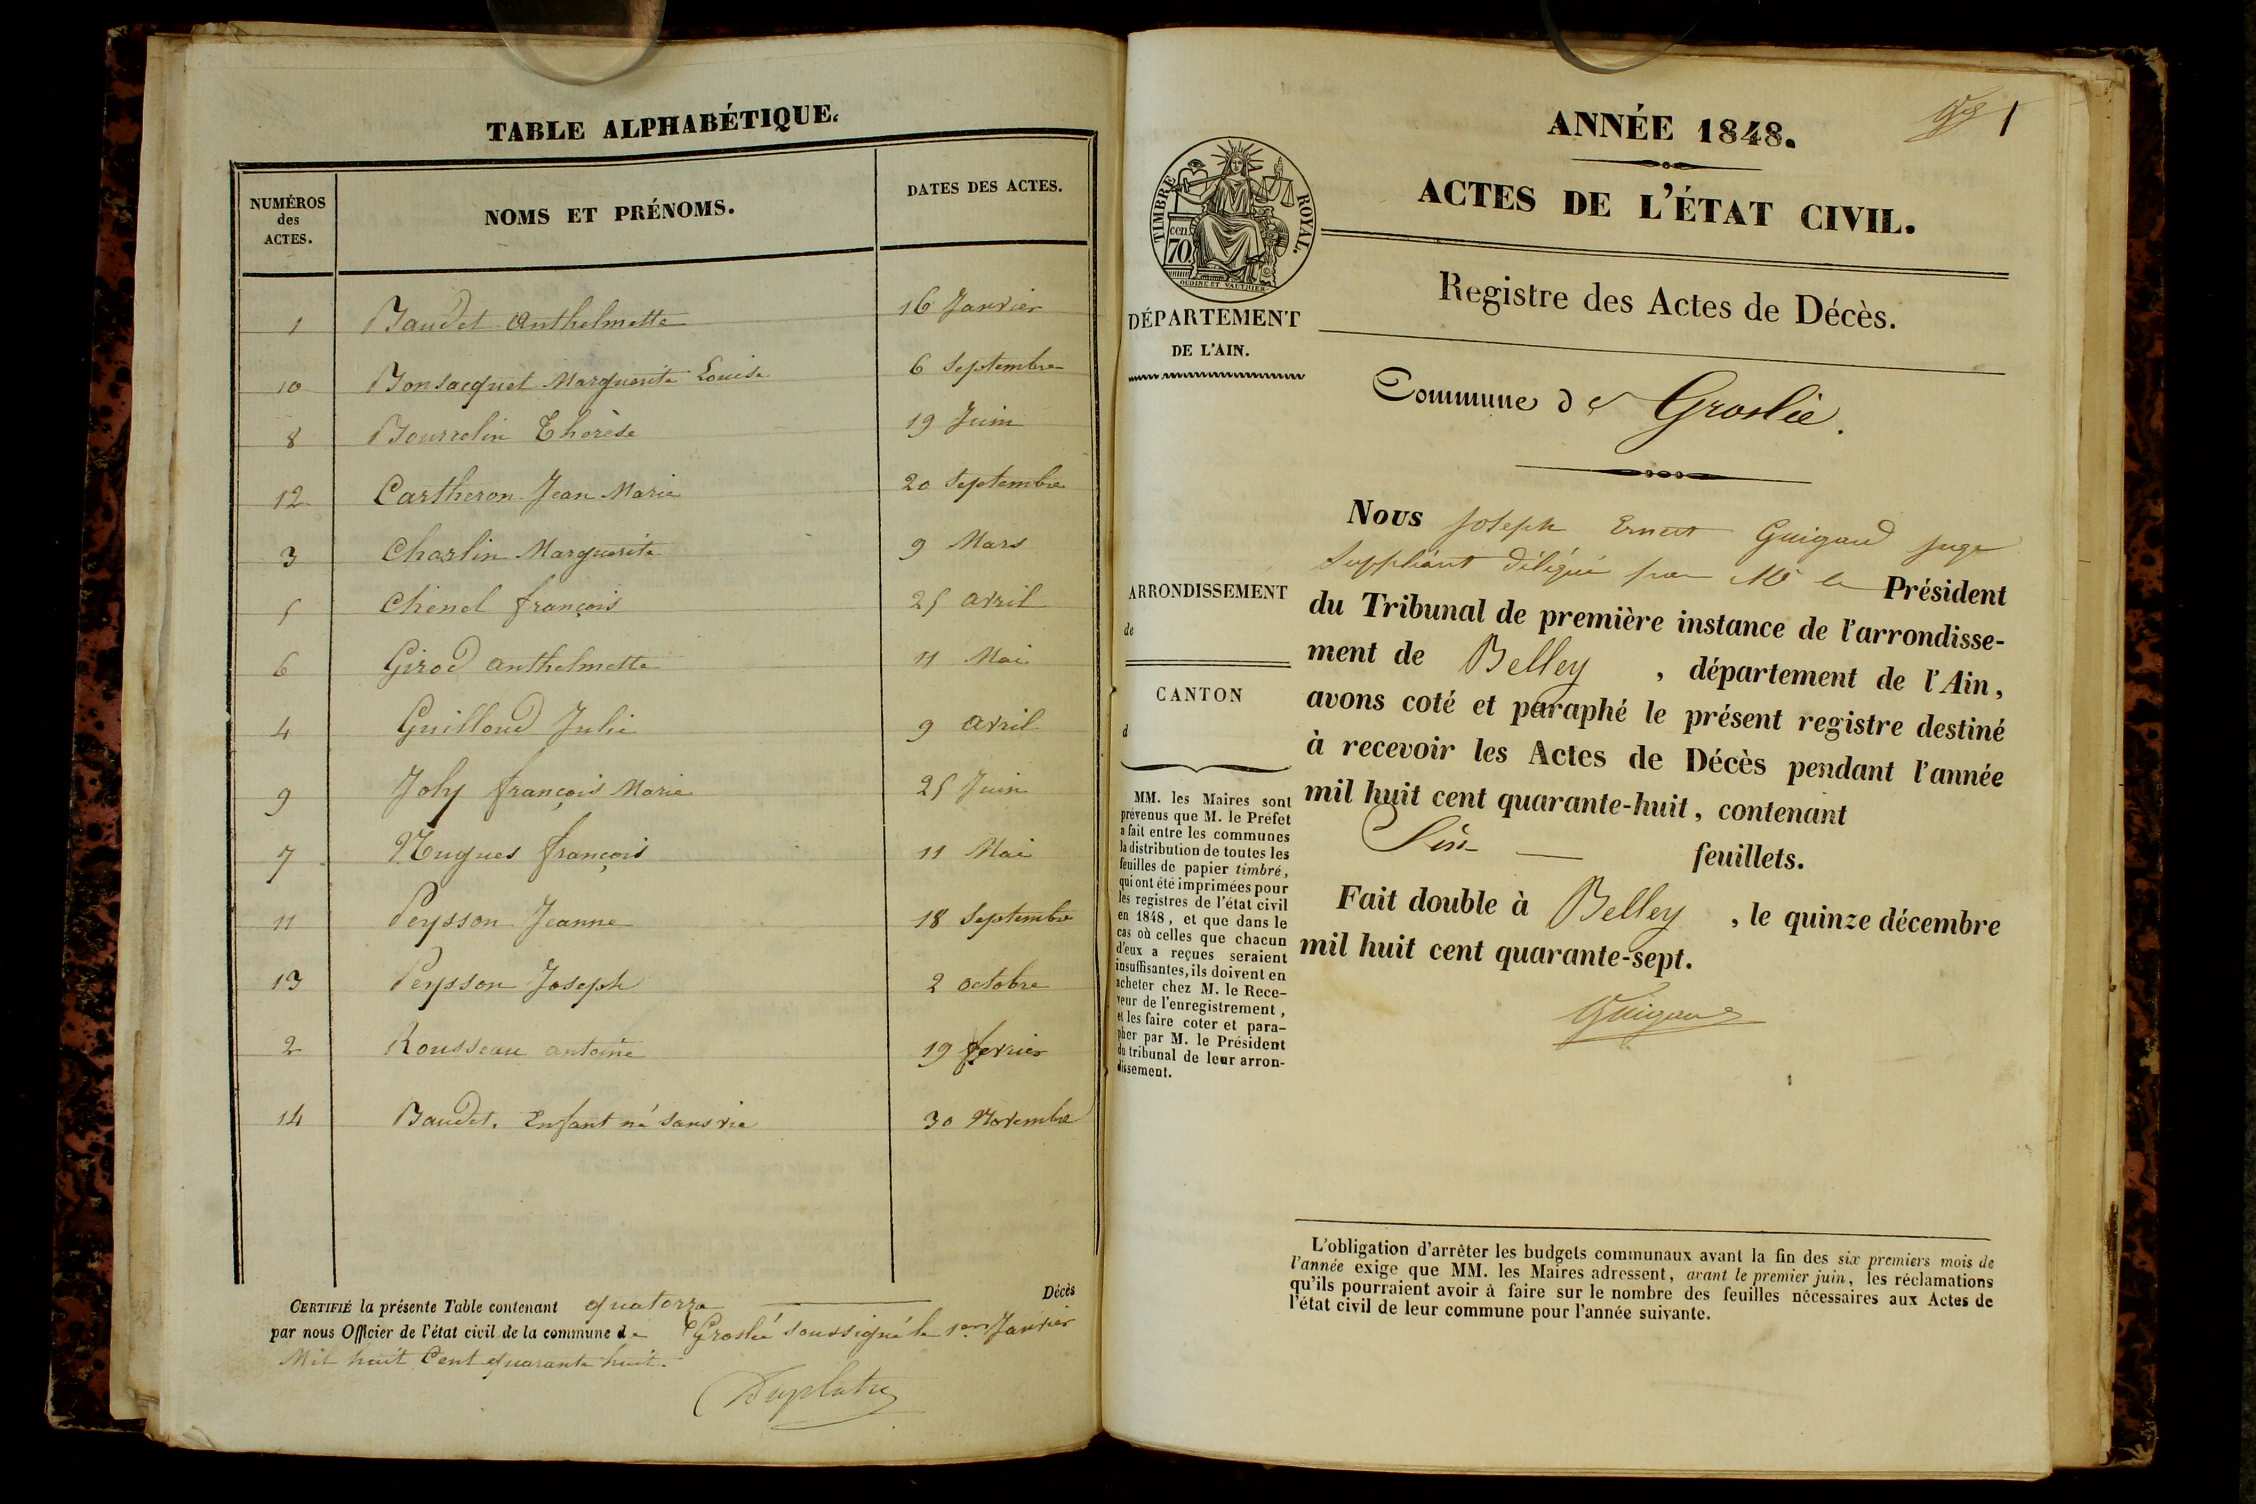 TABLE ALPHABÉTIQUE.
NUMÉROS
des
ACTES.
NOMS ET PRÉNOMS.
DATES DES ACTES.
1 Baudet Anthelmette 16 Janvier
10 Bonsacquet Marguerite Louise 6 Septembre
8 Bourrelin Thérèse 19 Juin
12 Cartheron Jean Marie 20 Septembre
3 Charlin Marguerite 9 Mars
5 Chenel françois 25 avril
6 Girod anthelmette 11 Mai
4 Guilloud Julie 9 avril
9 Joly françois Marie 25 Juin
7 Hugues françois 11 Mai
11 Peysson Jeanne 18 Septembre
13 Peysson Joseph 2 octobre
2 Rousseau antoine 19 fevrier
14 Baudet. Enfant né sans vie 30 Novembre
CERTIFIÉ la présente Table contenant quatorze Décès
par nous Officier de l'état civil de la commune de Groslée soussigné le 1er Janvier
Mil huit Cent quarante huit.
Duplatre
ANNÉE 1848.
1
ACTES DE L'ÉTAT CIVIL.
TIMBRE ROYAL.
cen.
70
OUDINÉ ET VAUTHIER
Registre des Actes de Décès.
DÉPARTEMENT
DE L'AIN.
Commune de Groslée.
ARRONDISSEMENT
de
CANTON
d
MM. les Maires sont
prévenus que M. le Préfet
a fait entre les communes
la distribution de toutes les
feuilles de papier timbré,
qui ont été imprimées pour
les registres de l'état civil
en 1848, et que dans le
cas où celles que chacun
d'eux a reçues seraient
insuffisantes, ils doivent en
acheter chez M. le Rece-
veur de l'enregistrement,
et les faire coter et para-
pher par M. le Président
du tribunal de leur arron-
dissement.
Nous Joseph Ernest Guigard juge
Suppléant délégué par Mr le Président
du Tribunal de première instance de l'arrondisse-
ment de Belley , département de l'Ain,
avons coté et paraphé le présent registre destiné
à recevoir les Actes de Décès pendant l'année
mil huit cent quarante-huit, contenant
Six feuillets.
Fait double à Belley , le quinze décembre
mil huit cent quarante-sept.
Guigard
L'obligation d'arrêter les budgets communaux avant la fin des six premiers mois de
l'année exige que MM. les Maires adressent, avant le premier juin, les réclamations
qu'ils pourraient avoir à faire sur le nombre des feuilles nécessaires aux Actes de
l'état civil de leur commune pour l'année suivante.